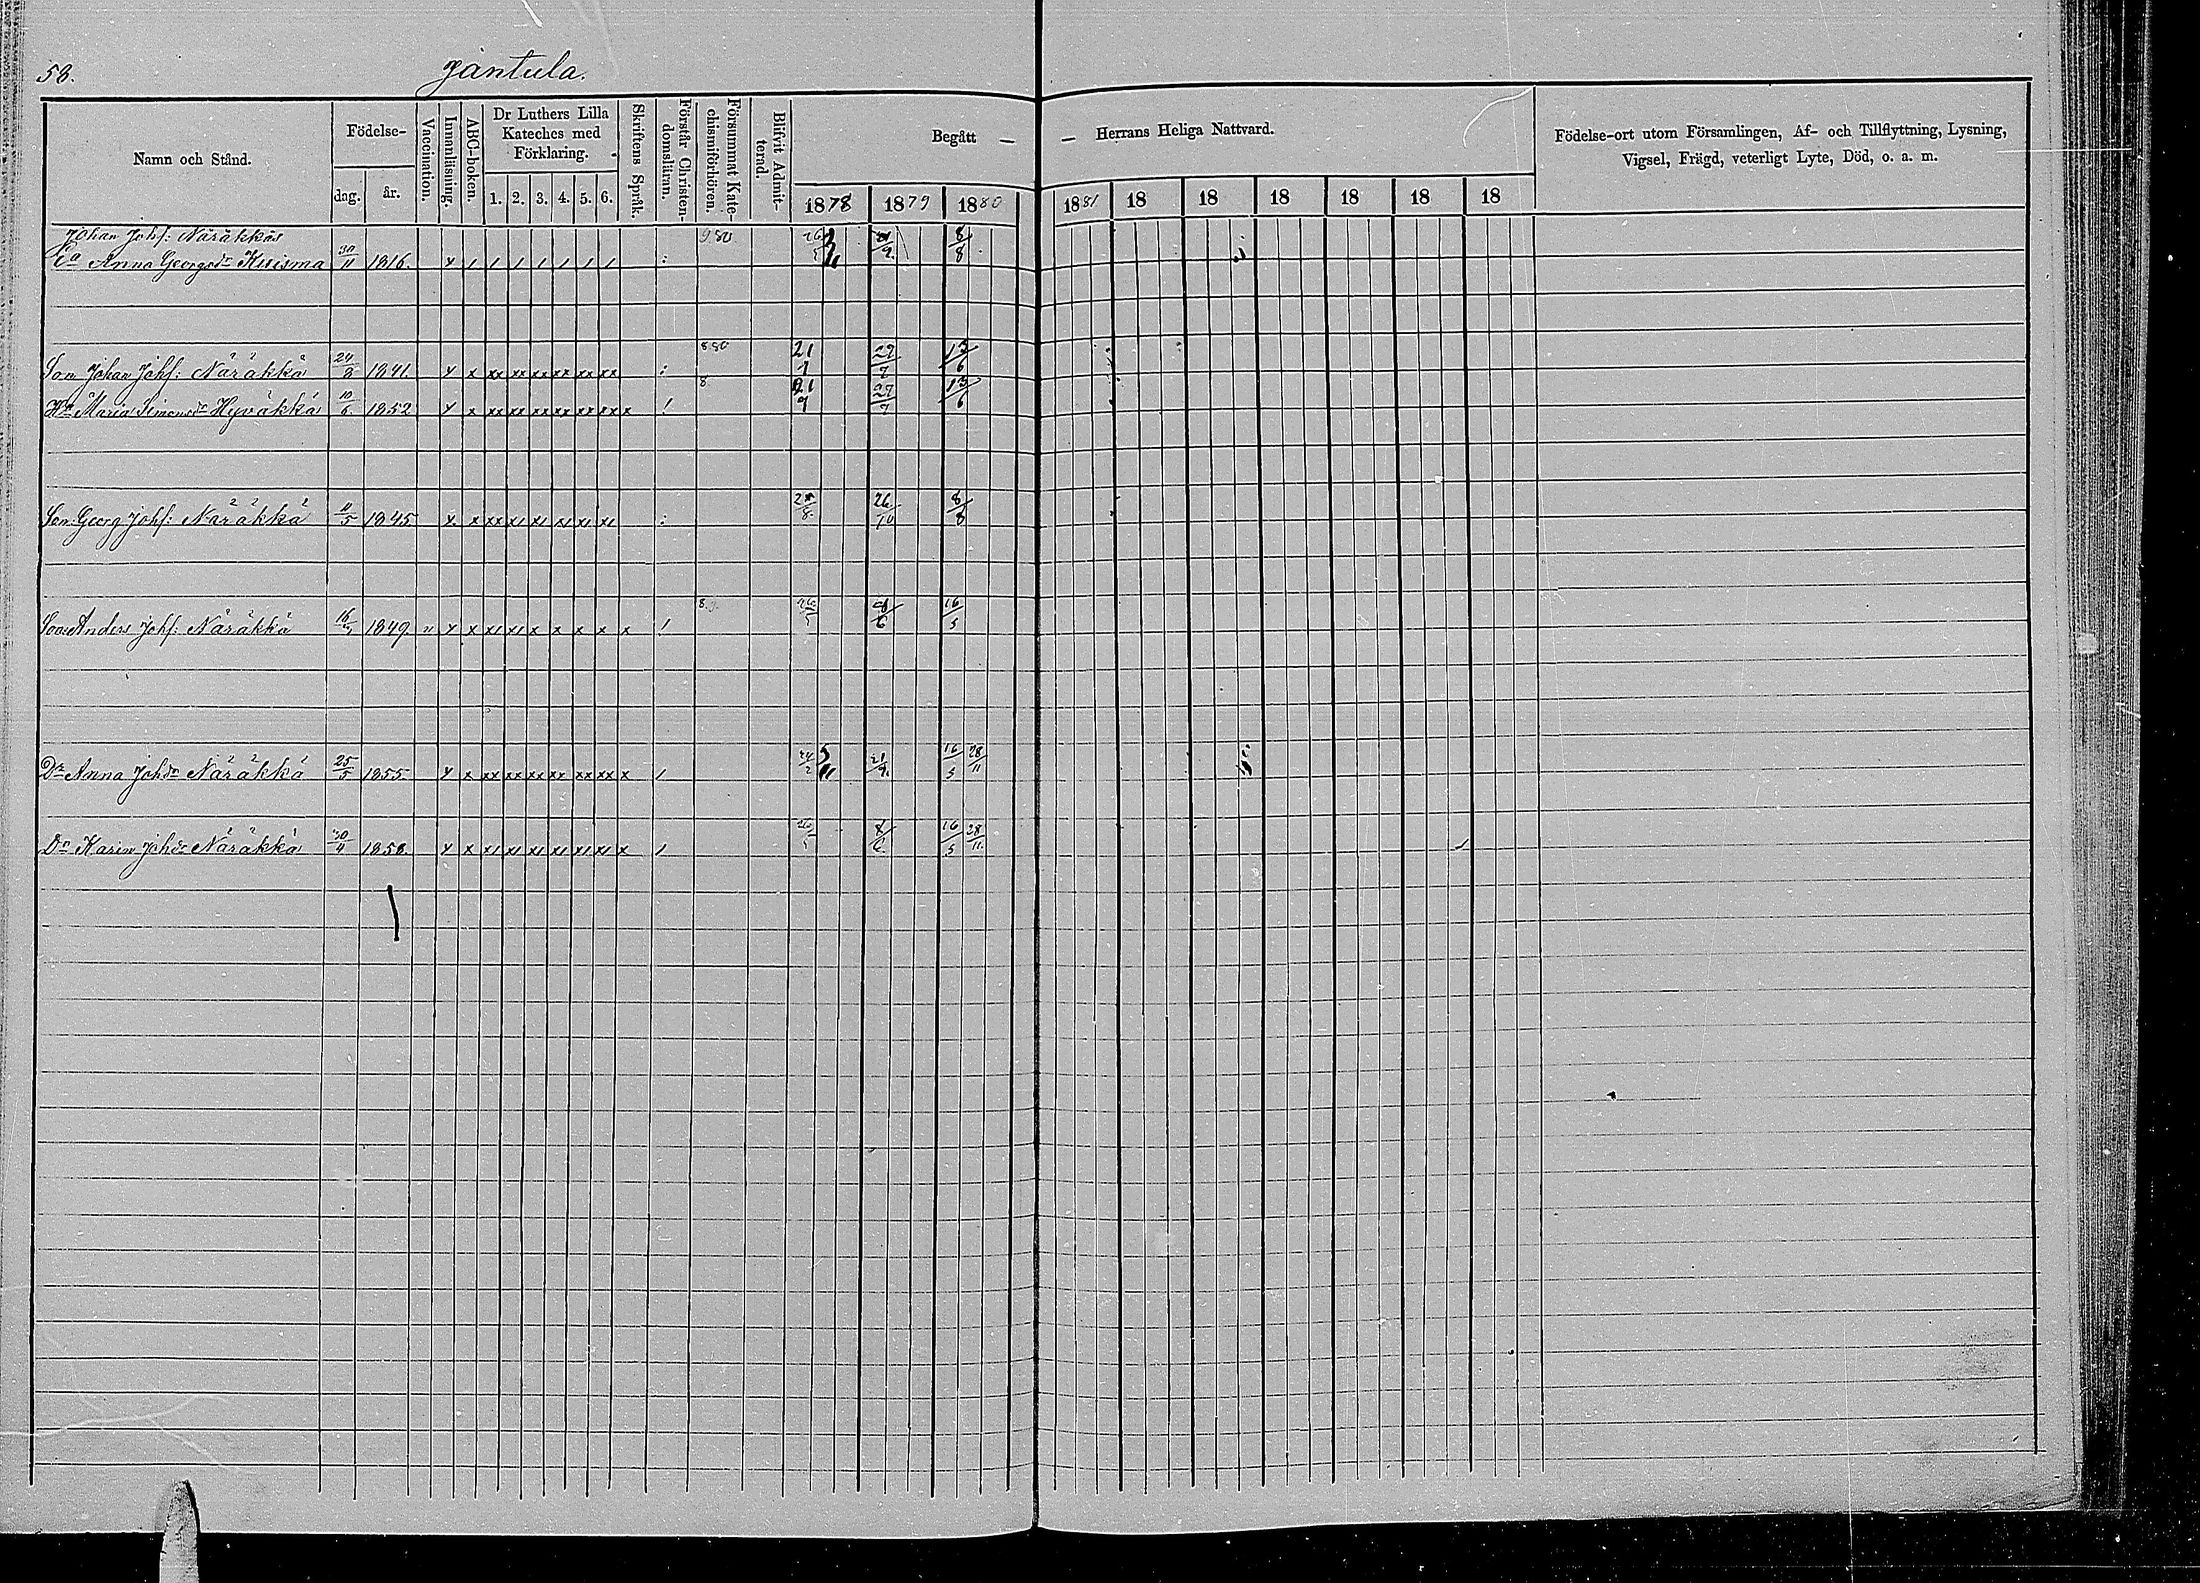 58.
Jäntula.
Namn och Stånd.
Födelse-
dag.
år.
Vaccination.
Innanläsning.
ABC-boken.
Dr Luthers Lilla
Kateches med
Förklaring.
1. 2. 3. 4. 5. 6.
Skriftens Språk.
Förstår Christen-
domsläran.
Försummat Kate-
chismiförhören.
Blifvit Admit-
terad.
Begått — — Herrans Heliga Nattvard.
1878 1879 1880 1881 18 18 18 18 18 18
Födelse-ort utom Församlingen, Af- och Tillflyttning, Lysning,
Vigsel, Frägd, veterligt Lyte, Död, o. a. m.
Johan Johs: Näräkkäs
Ea Anna Georgsdr Kuisma 30/11 1816. x / / / / / / / : 9.80 8/8
Son Johan Johs: Näräkkä 1841. x x xx xx xx xx xx xx : 8.80 21/7 27/7 13/6
Hu Maria Simonsdr Hyväkkä 10/6. 1852 x x xx xx xx xx xx xx x ! 8 21/7 27/7 13/6
Son Georg Johs: Näräkkä 1845 x x xx x/ x/ x/ x/ x/ : 26/10 8/8
Son Anders Johs: Näräkkä 1849. " x x x/ x/ x x x x x ! 8/6 16/5
Dr Anna Johdr Näräkkä 25/5 1855 x x xx xx xx xx xx xx x / 21/9. 16/5 28/11
Dr Karin Johdr Näräkkä 30/4 1858. x x x/ x/ x/ x/ x/ x/ x / 8/6. 16/5 28/11.